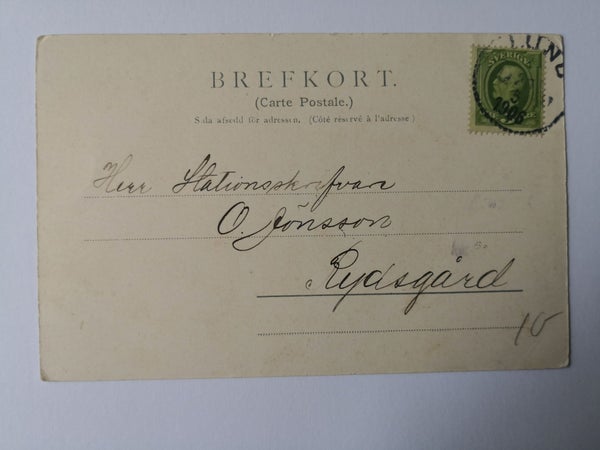 LUND
SVERIGE
1906
BREFKORT.
(Carte Postale.)
Sida afsedd för adressen. (Côté réservé à l'adresse)
Herr Stationsskrifvare
O. Jönsson
Rydsgård
10